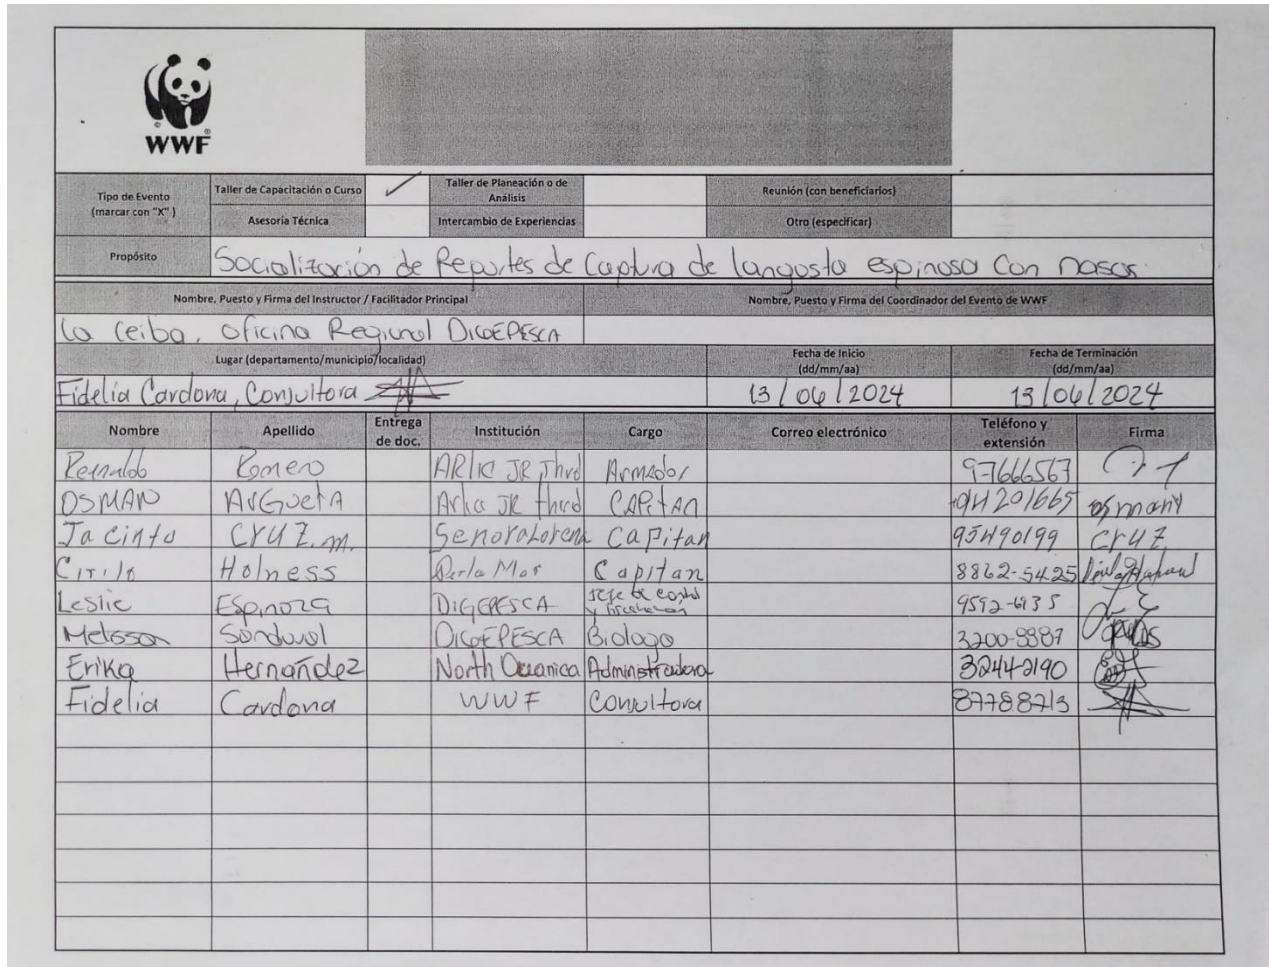 WWF
Tipo de Evento (marcar con "X" )
Taller de Capacitación o Curso ✓ Taller de Planeación o de Análisis Reunión (con beneficiarios)
Asesoria Técnica Intercambio de Experiencias Otro (especificar)
Propósito Socialización de Reportes de Captura de langosta espinosa con nasas.
Nombre, Puesto y Firma del Instructor / Facilitador Principal Nombre, Puesto y Firma del Coordinador del Evento de WWF
La Ceiba, Oficina Regional DIGEPESCA
Lugar (departamento/municipio/localidad) Fecha de Inicio (dd/mm/aa) Fecha de Terminación (dd/mm/aa)
Fidelia Cardona, Consultora 13/06/2024 13/06/2024
Nombre Apellido Entrega de doc. Institución Cargo Correo electrónico Teléfono y extensión Firma
Reinaldo Romero ARlie JR Thrd Armador 97666567
OSMAN ArGueta Arlie JR third CAPitAn 94201665 osmany
Jacinto Cruz.m. SenoraLorena Capitan 95490199 Cruz
Cirilo Holness Perla Mar Capitan 8862-5425
Leslie Espinoza DIGEPESCA Jefe de
Melisson Sandoval DIGEPESCA Biologo 3200-8887
Erika Hernández North Oceanica Administradora 3244-2190
Fidelia Cardona WWF Consultora 87788713